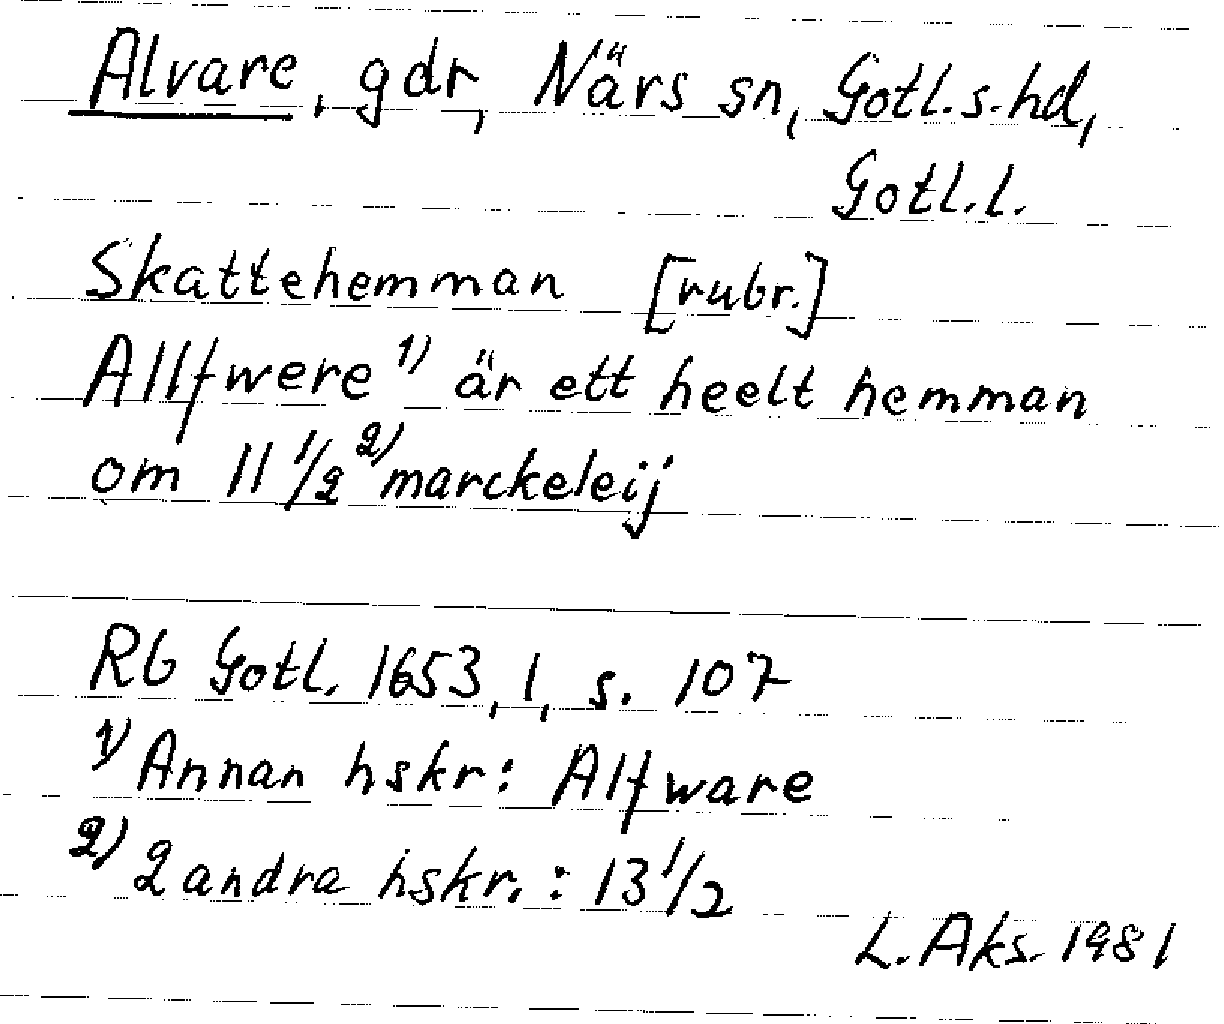 Alvare, gdr, Närs sn, Gotl.s.hd,
Gotl.l.
Skattehemman [rubr.]
Allfwere 1) är ett heelt hemman
om 11 1/2 2) marckeleij
Rb Gotl. 1653, 1, s. 107
1) Annan hskr: Alfware
2) 2 andra hskr.: 13 1/2
L. Aks. 1981